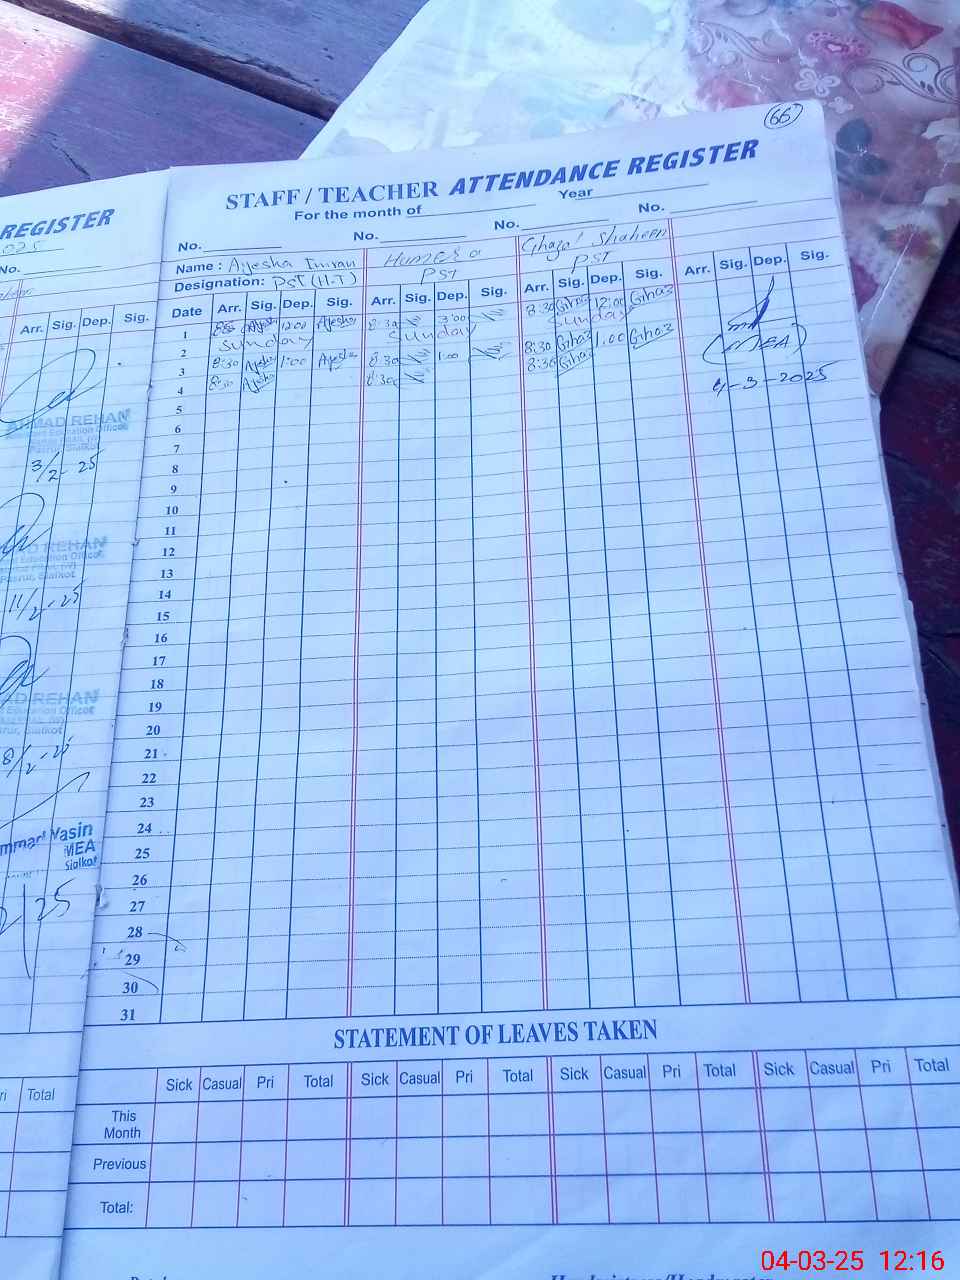 66
STAFF / TEACHER ATTENDANCE REGISTER
For the month of Year
No. No. No. No.
Name : Ayesha Imran Humera Ghazal Shaheen
Designation: PST (H.T) PST PST
Date Arr. Sig. Dep. Sig. Arr. Sig. Dep. Sig. Arr. Sig. Dep. Sig. Arr. Sig. Dep. Sig.
1 Ayesha 12:00 Ayesha 8:30 8:30 Ghaz 12:00 Ghaz
2 Sunday Sunday Sunday
3 8:30 Ayesha 1:00 Ayesha 8:30 1:00 8:30 Ghaz 1:00 Ghaz
4 8:30 Ayesha 8:30 8:30 Ghaz
(MEA)
4-3-2025
5
6
7
8
9
10
11
12
13
14
15
16
17
18
19
20
21
22
23
24
25
26
27
28
29
30
31
STATEMENT OF LEAVES TAKEN
Sick Casual Pri Total Sick Casual Pri Total Sick Casual Pri Total Sick Casual Pri Total
This Month
Previous
Total:
REGISTER
No.
Arr. Sig. Dep. Sig.
AHMAD REHAN
Pasrur, Sialkot
3/2-25
REHAN
Pasrur, Sialkot
11/2-25
AD REHAN
Education Officer
Sialkot
8/2-25
Yasin
MEA
Sialkot
25
Total
04-03-25 12:16